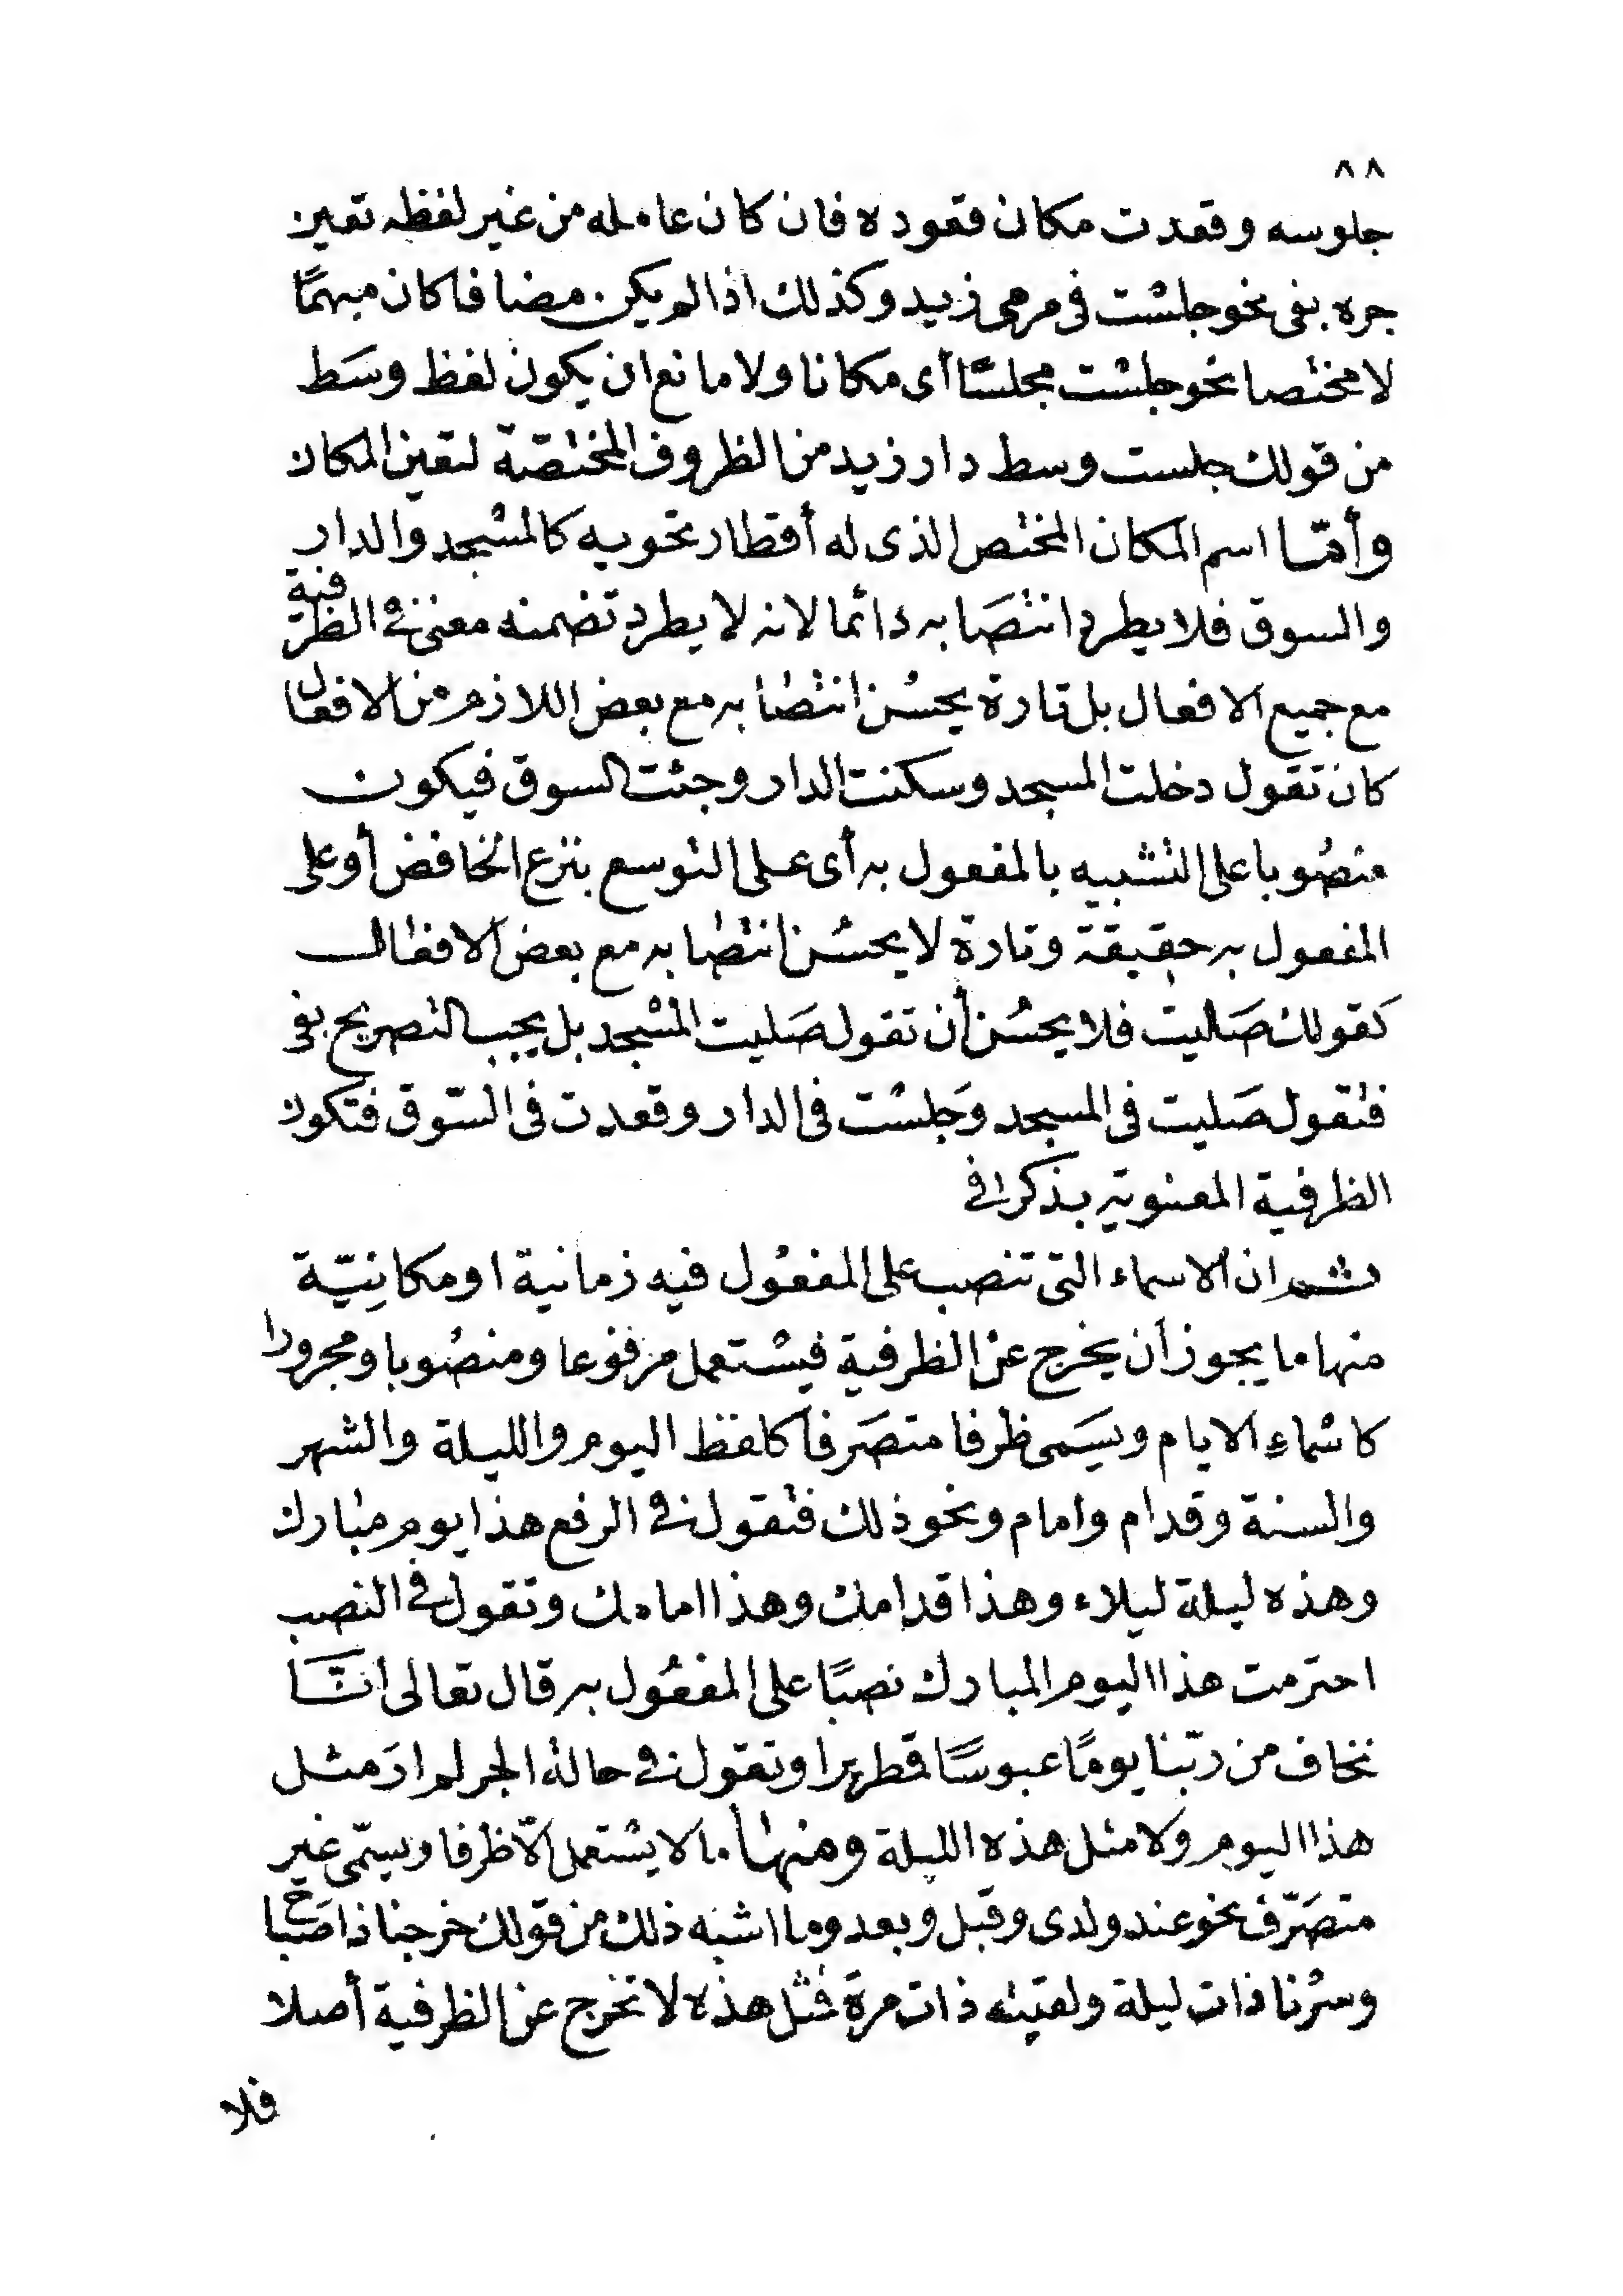 ٨٨
جلوسه وقعدت مكان قعوده فان كان عامله من غير لفظه تعين
جره بفى نحو جلست فى مرمى زيد وكذلك اذا لم يكن مضافا كان مبهمًا
لا مختصا نحو جلست مجلسًا أى مكانا ولا مانع ان يكون لفظ وسَط
من قولك جلست وسط دار زيد من الظروف المختصّة لتعين المكان
وأمّا اسم المكان المختص الذى له أقطار تحويه كالمسجد والدار
والسوق فلا يطرد انتصَابه دائما لانه لا يطرد تضمنه معنى فى الظرّفية
مع جميع الافعال بل تارة يحسُن انتصابه مع بعض اللازم من الافعال
كان تقول دخلت المسجد وسكنت الدار وجئت السوق فيكون
منصُوبا على التشبيه بالمفعول به أى على التوسع بنزع الخافض أو على
المفعول به حقيقة وتارة لا يحسُن انتصابه مع بعض الافعال
كقولك صَليت فلا يحسُن أن تقول صَليت المسْجد بل يجب التصريح بفى
فتقول صَليت فى المسجد وَجلست فى الدار وقعدت فى السّوق فتكون
الظرفية المعنوية بذكر فى
ثم ان الاسماء التى تنصب على المفعُول فيه زمانية او مكانِيّة
منها ما يجوز أن يخرج عن الظرفية فيستعمل مرفوعا ومنصُوبا ومجرورا
كاسْماءِ الايام ويسَمى ظرفا متصَرفا كلفظ اليوم والليلة والشهر
والسنة وقدام وامام ونحو ذلك فتقول فى الرفع هذا يوم مبارك
وهذه ليلة ليلاء وهذا قدامك وهذا امامك وتقول فى النصب
احترمت هذا اليوم المبارك نصبًا على المفعُول به قال تعالى انّا
نخاف من ربّنا يومًا عبوسًا قمطريرا وتقول فى حالة الجر لم ارَ مثل
هذا اليوم ولا مثل هذه الليلة ومنها ما لا يستعمل الّا ظرفا ويسمّى غير
متصَرّف نحو عند ولدى وقبل وبعد وما اشبه ذلك من قولك خرجنا ذا صَباح
وسرْنا ذات ليلة ولقيته ذات مرة فمثل هذه لا تخرج عن الظرفية أصلا
فلا